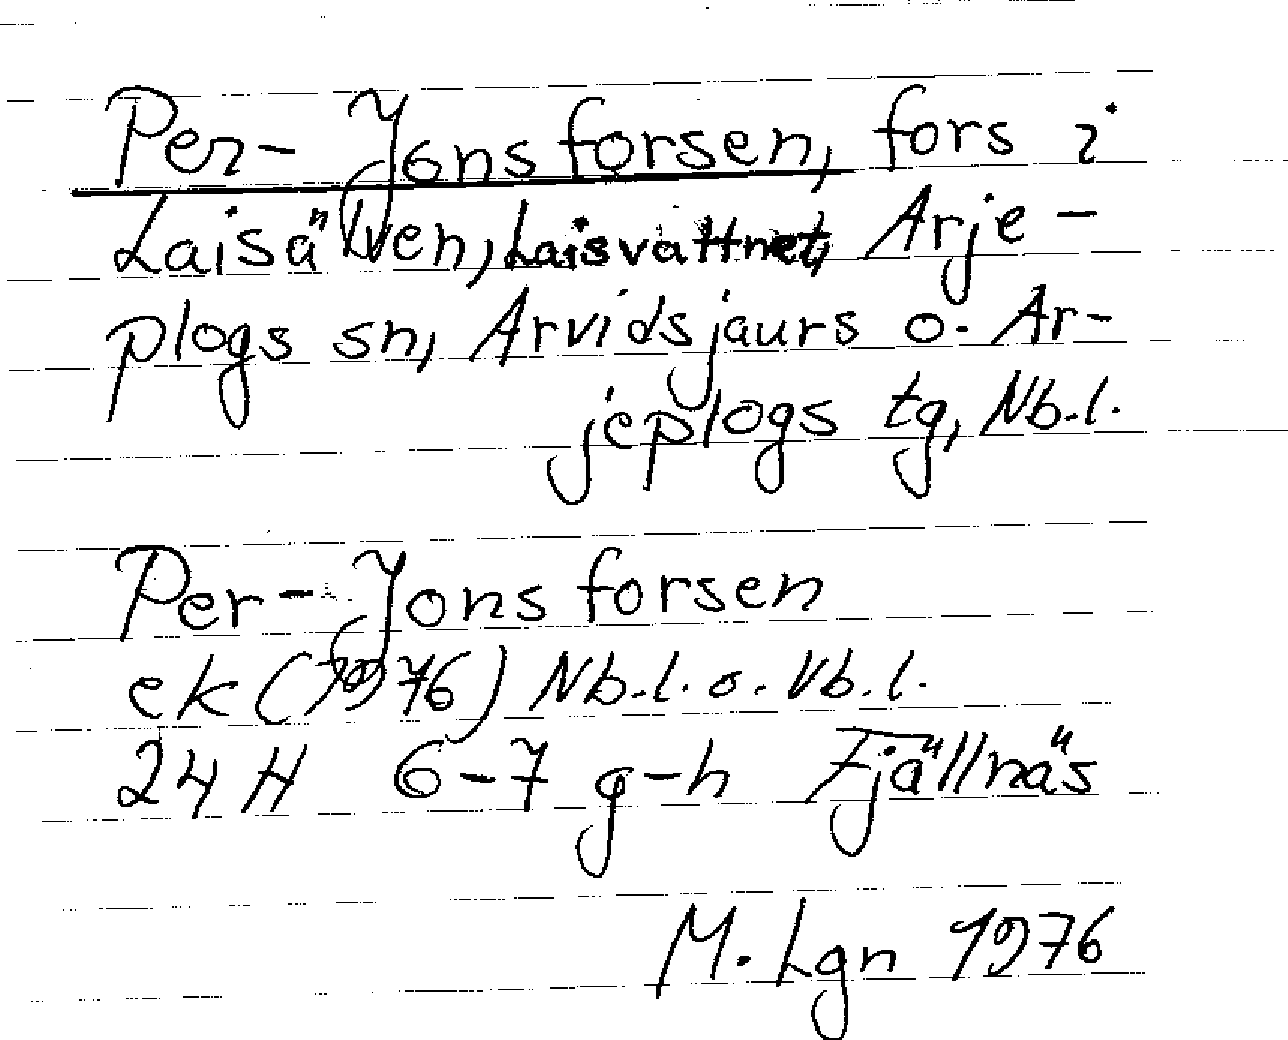 Per-Jonsforsen, fors i
Laisälven, Laisvattnet, Arje-
plogs sn, Arvidsjaurs o. Ar-
jeplogs tg, Nb.l.
Per-Jonsforsen
ek (1976) Nb.l. o. Vb.l.
24 H 6-7 g-h Fjällnäs
M. Lgn 1976